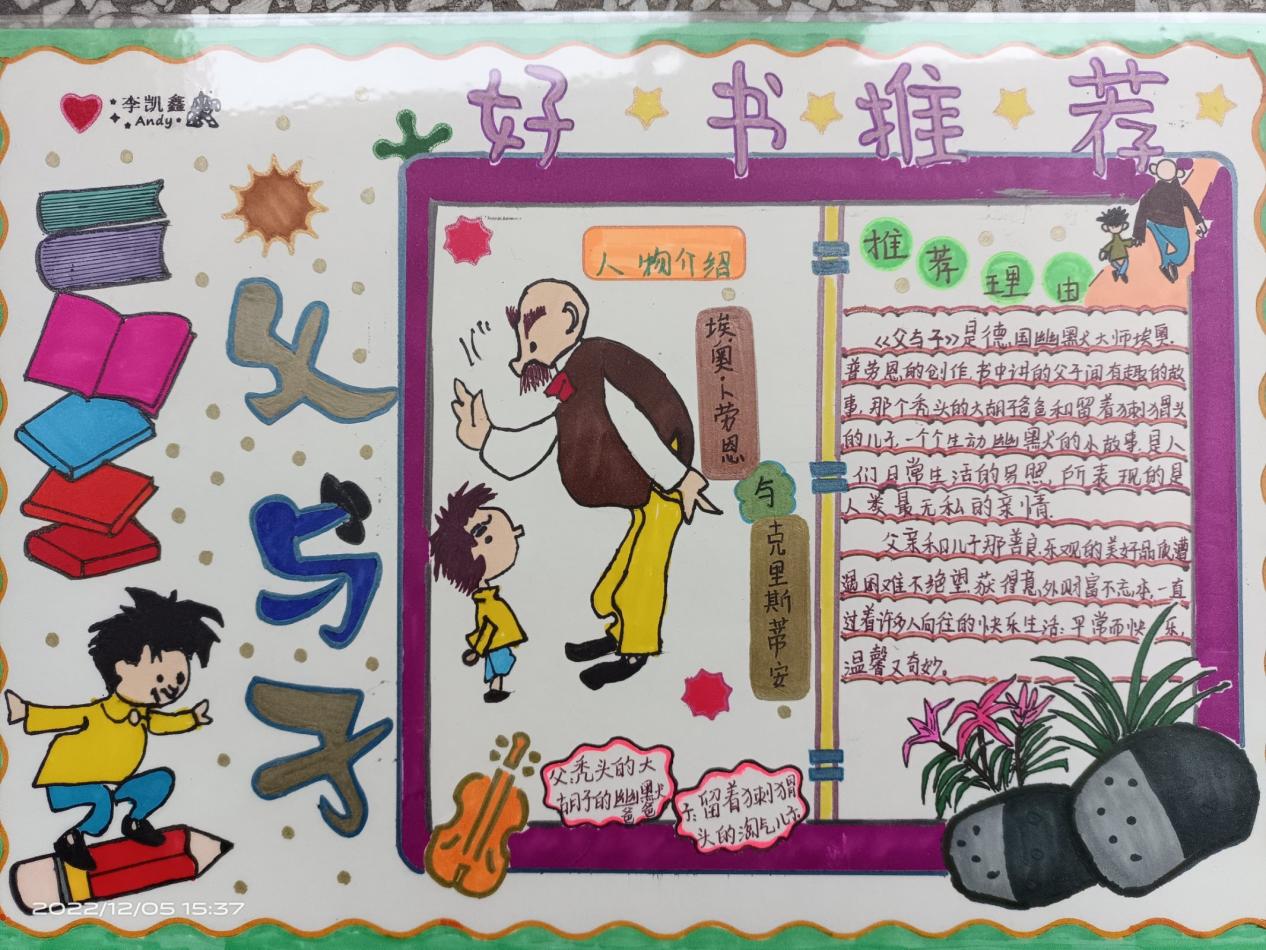 好书推荐
李凯鑫
Andy
父与子
人物介绍
埃·奥·卜劳恩
与
克里斯蒂安
父:秃头的大
胡子的幽默
爸爸
子:留着刺猬
头的淘气儿子
推荐理由
《父与子》是德国幽默大师埃奥.
普劳恩的创作,书中讲的父子间有趣的故
事,那个秃头的大胡子爸爸和留着刺猬头
的儿子,一个个生动幽默的小故事,是人
们日常生活的另照,所表现的是
人类最无私的亲情.
父亲和儿子那善良、乐观的美好品质,遭
遇困难不绝望,获得意外财富不忘本,一直
过着许多人向往的快乐生活:平常而快乐,
温馨又奇妙。
2022/12/05 15:37